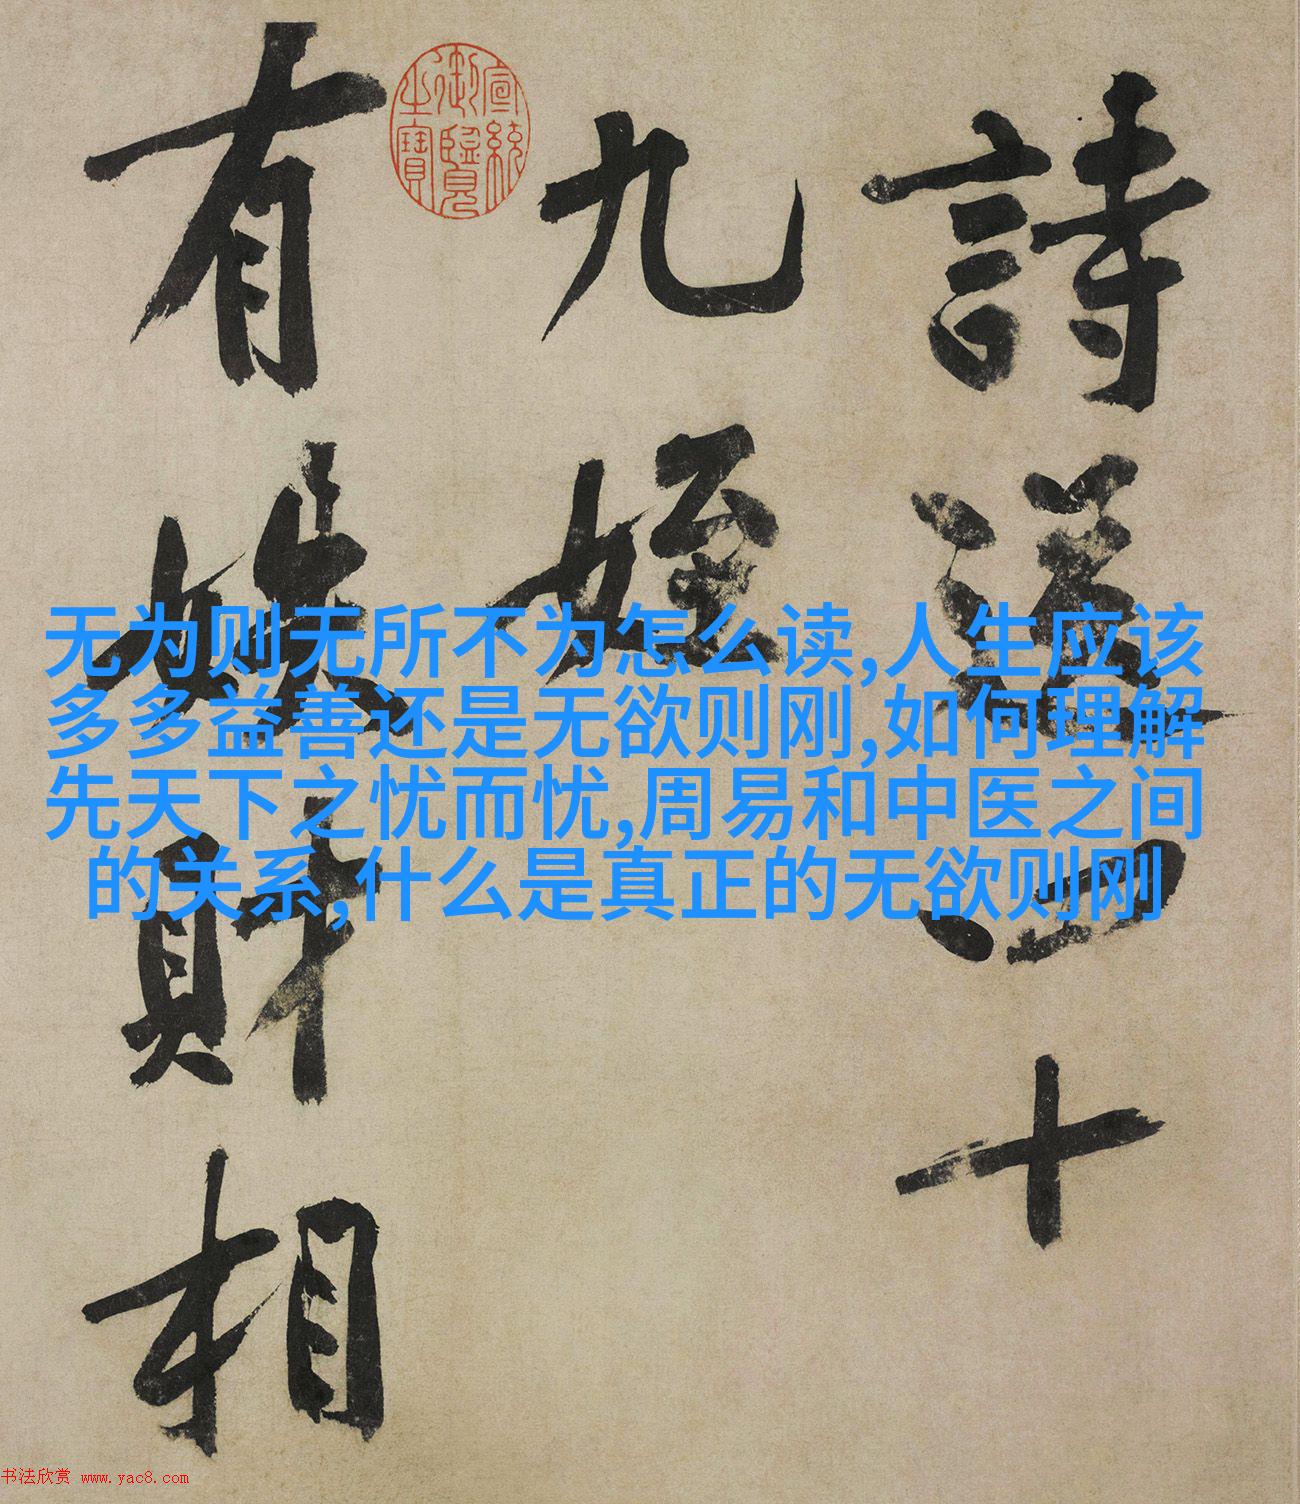 詩送四十
九姪
有姪財相
宣統
御覽
之寶
无为则无所不为怎么读,人生应该
多多益善还是无欲则刚,如何理解
先天下之忧而忧,周易和中医之间
的关系,什么是真正的无欲则刚
书法欣赏 www.yac8.com